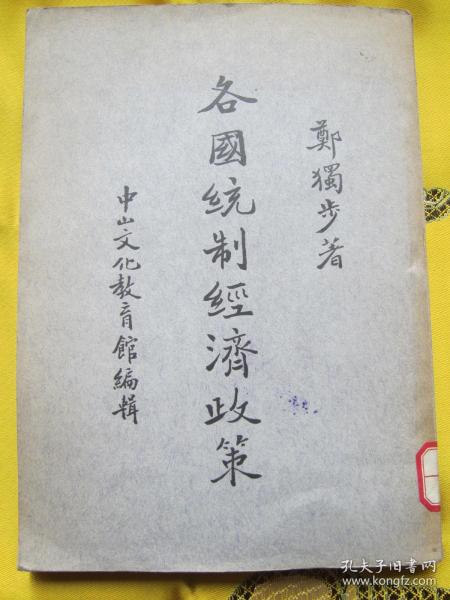 鄭獨步著
各國統制經濟政策
中山文化教育館編輯
孔夫子旧书网
www.kongfz.com